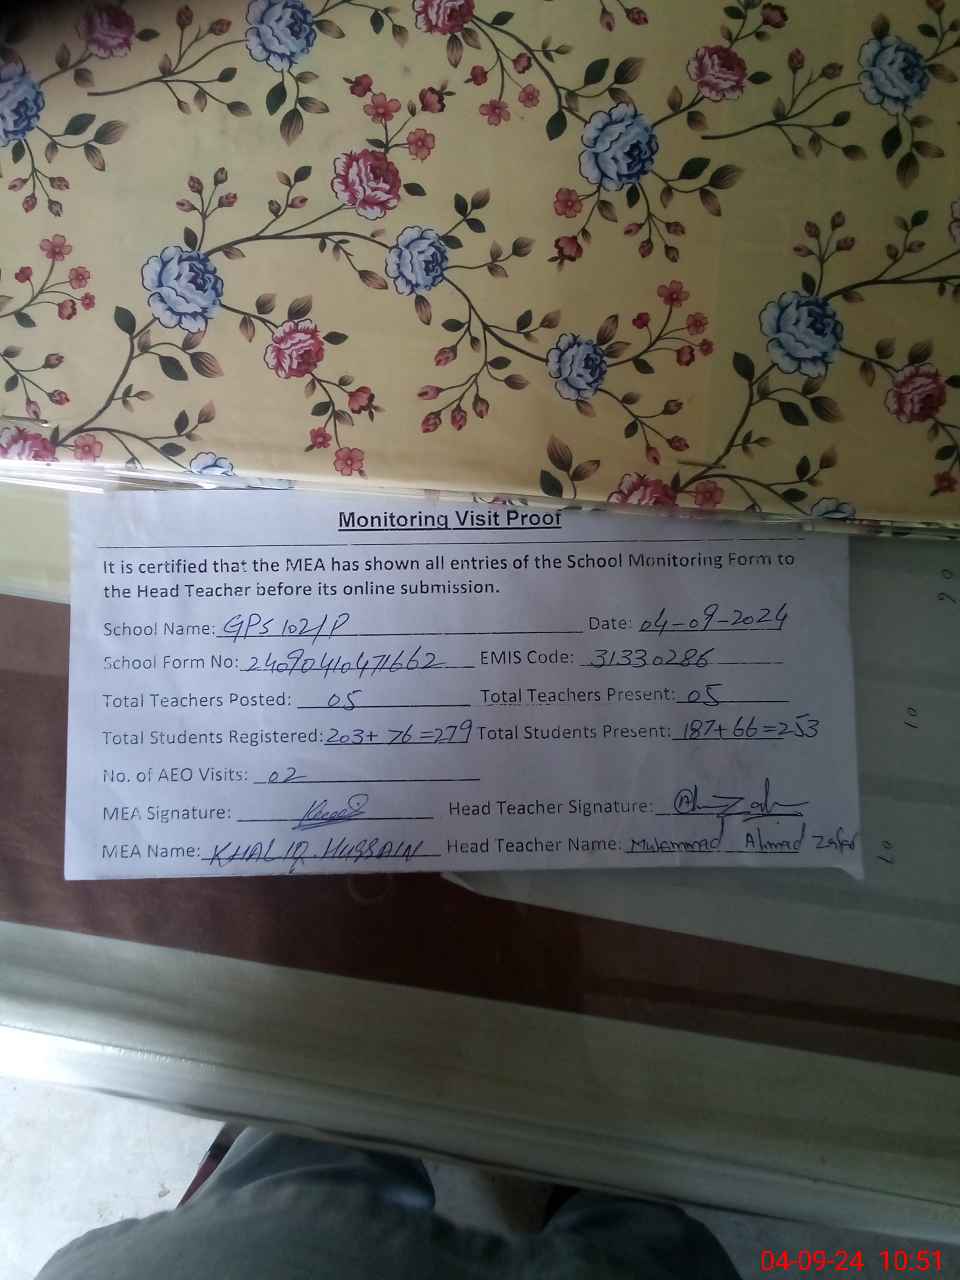 Monitoring Visit Proof
It is certified that the MEA has shown all entries of the School Monitoring Form to
the Head Teacher before its online submission.
School Name: GPS 102/P Date: 04-09-2024
School Form No: 24090410471662 EMIS Code: 31330286
Total Teachers Posted: 05 Total Teachers Present: 05
Total Students Registered: 203+76=279 Total Students Present: 187+66=253
No. of AEO Visits: 02
MEA Signature: Head Teacher Signature:
MEA Name: KHALIQ HUSSAIN Head Teacher Name: Muhammad Ahmad Zafar
04-09-24 10:51